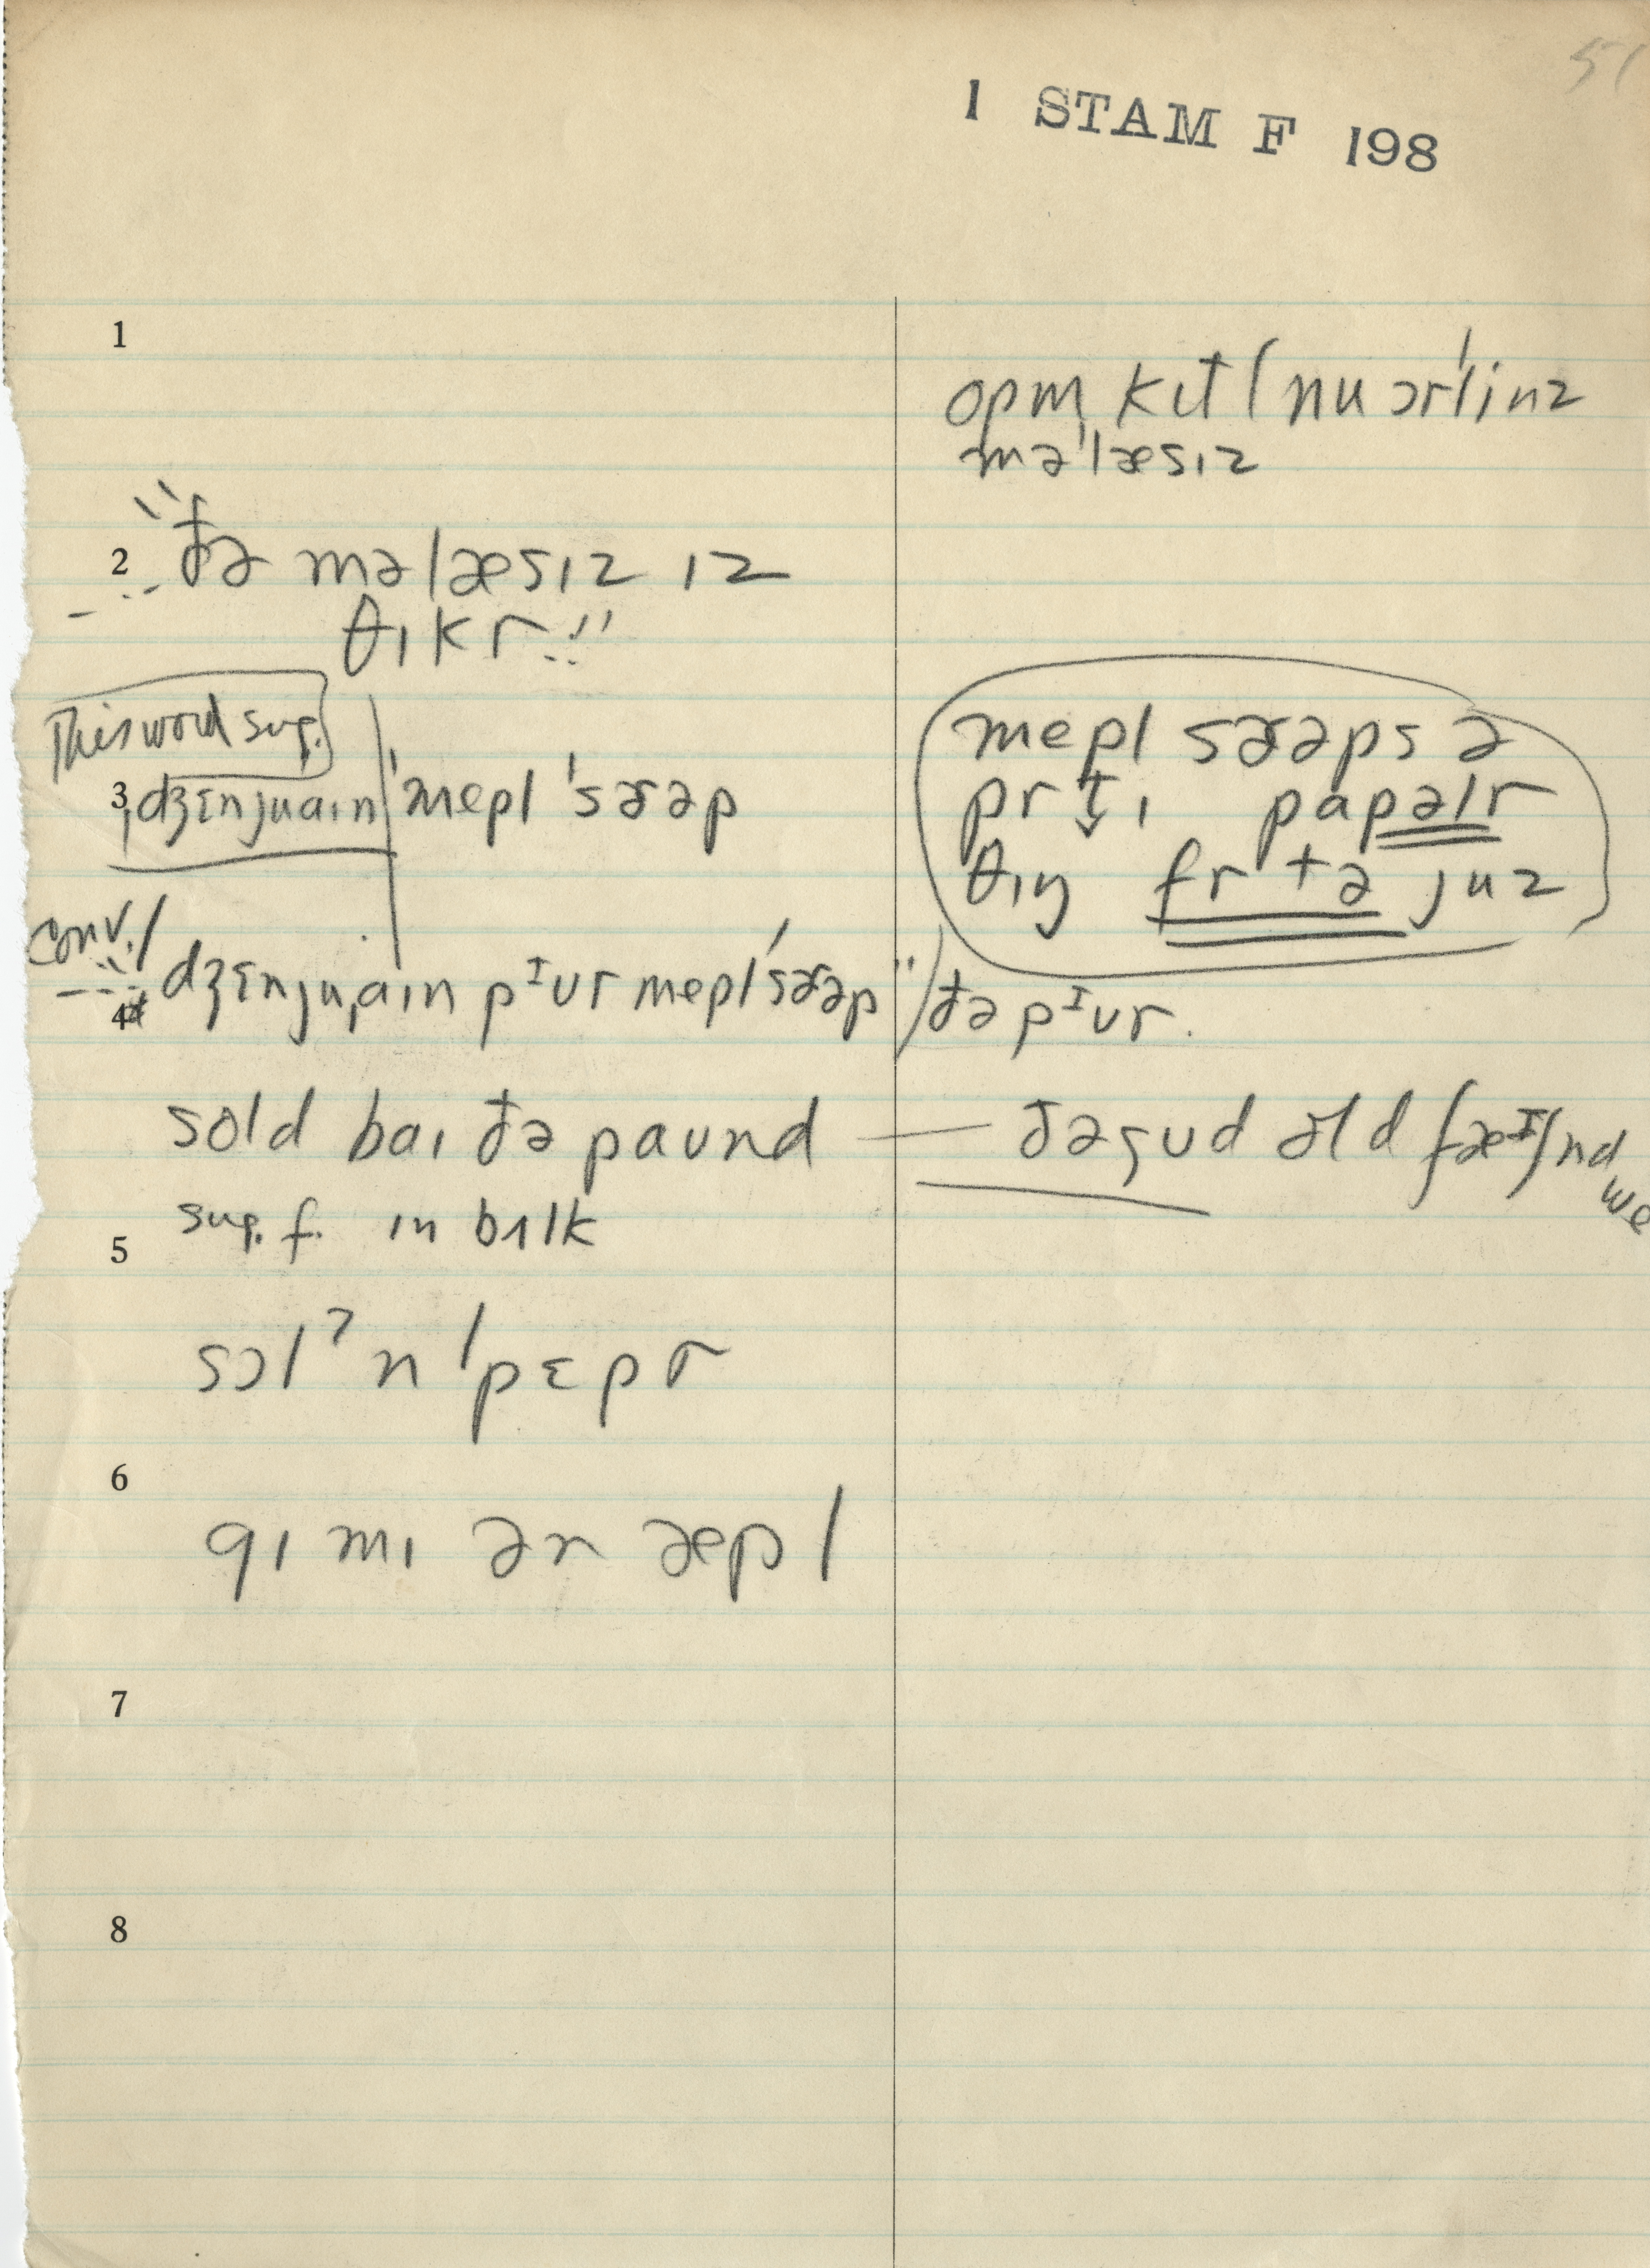 51
1 STAM F 198
1
opm̩ kɪt l nu ɔr'linz
mə'læsɪz
2 "ðə məlæsɪz ɪz
θɪkr"
This word sug.
3 dʒɛnjuaɪn 'mepl 'sɜrəp
mepl sɜrəps ə
prt̬ɪ papəlr
θɪŋ fr tə juz
conv.
4 dʒɛnjuaɪn pᶦur mepl'sɜrəp" ðə pᶦur.
sold baɪ ðə paund — ðə gud old fæᶦʃnd we
sug. f. ɪn bʌlk
5
sɔlˀn 'pɛpr
6
gɪ mɪ ən æpl
7
8